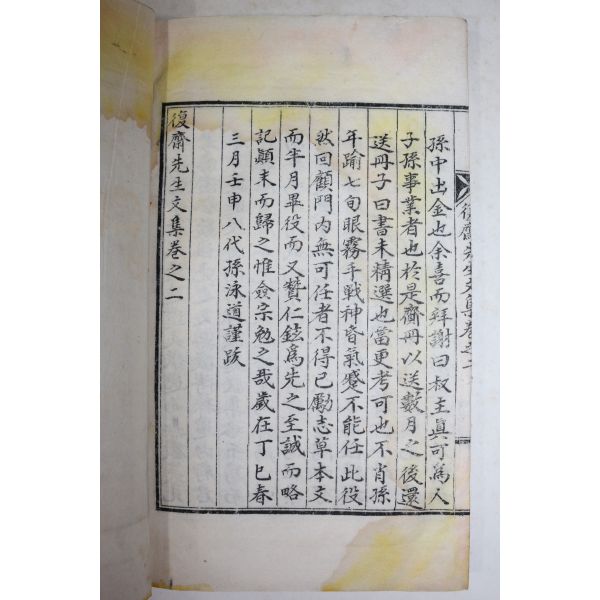 復齋先生文集卷之二
孫中出金也余喜而拜謝曰叔主眞可爲人
子孫事業者也於是齎冊以送數月之後還
送冊子曰書未精選也當更考可也不肖孫
年踰七旬眼霧手戰神昏氣蹙不能任此役
然回顧門內無可任者不得已勵志草本文
而半月畢役而又贊仁鉉爲先之至誠而略
記顚末而歸之惟僉宗勉之哉歲在丁巳春
三月壬申八代孫泳道謹跋
復齋先生文集卷之二